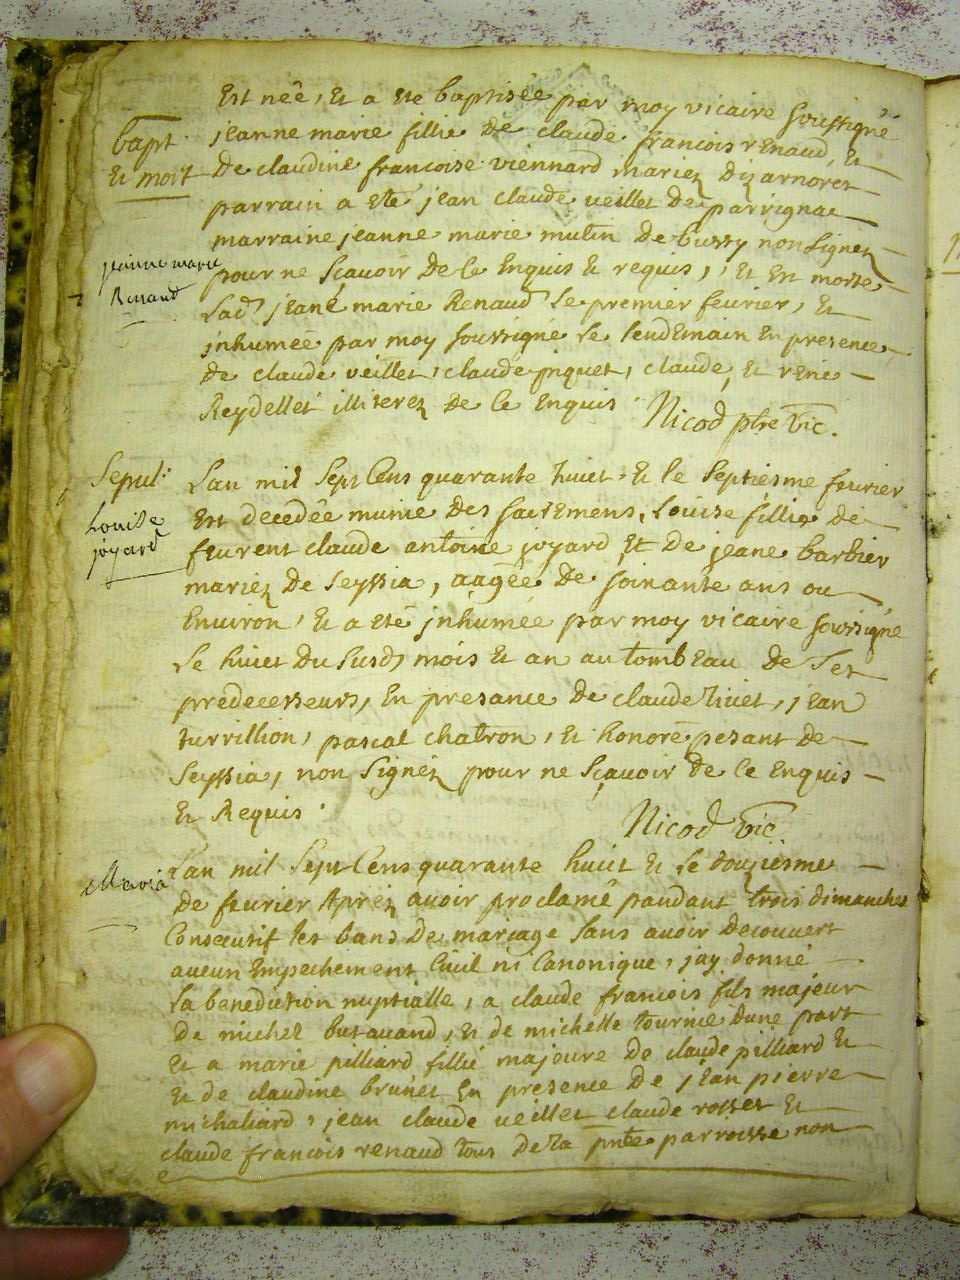 Est née, Et a ete baptisée par moy vicaire soussigné
bapt.
jeanne marie fillie de claude francois renaud, Et
Et mort
De claudine francoise viennard mariez dizarnoret
parrain a eté jean claude veillet de parrignac
marraine jeanne marie mutin de bussy non signez
jeanne marie
Renaud
pour ne sçavoir de ce Enquis Et requis, Et est morte
Lad. jeane marie Renaud le premier fevrier, Et
jnhumée par moy soussigné le lendemain En presence
de claude veillet, claude piquet, claude, Et rene
Reydellet illiterez de ce Enquis Nicod ptre vic.
Sepul.
Lan mil Sept Cens quarante huict Et le Septiesme fevrier
Louise
joyard
Est decedée munie des sacremens, Louise fillie de
feurent claude antoine joyard Et de jeane barbier
mariez de Seyssia, aagée de soixante ans ou
Environ, Et a eté jnhumée par moy vicaire soussigné
Le huict du susd. mois Et an au tombeau de ses
predecesseurs, En presance de claude huict, jean
turrillion, pascal chatron, Et honoré pesant de
Seyssia, non signéz pour ne sçavoir de ce Enquis
Et Requis.
Nicod vic.
Maria
Lan mil Sept Cens quarante huict Et Le douziesme
de fevrier Apréz avoir proclamé pandant trois dimanches
Consecutif les bans de mariage sans avoir decouvert
aucun Empechement Civil ni Canonique, jay donné
La benediction nuptialle, a claude francois fils majeur
de michel butavand, Et de michelle tournier dune part
Et a marie pilliard fillie majeure de claude pilliard Et
Et de claudine brunet En presence de jean pierre
michaliard, jean claude veillet claude rosset Et
claude francois renaud tous de la pnte parroisse non